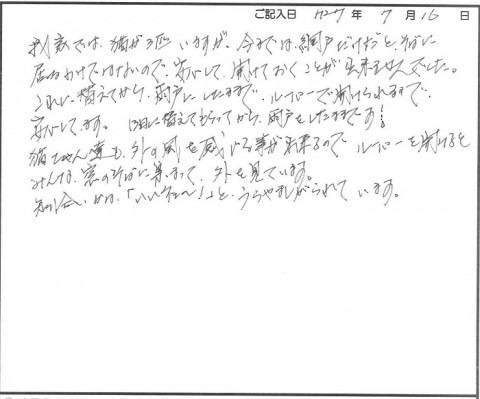 ご記入日 H27年 7月16日
我家では、猫が3匹いますが、今までは、網戸だけだと、そばに
居るわけではないので、安心して、開けておくことが出来ませんでした。
これに替えてから、雨戸にしたままで、ルーバーで開けられるので、
安心してます。 に替えてもらってから、雨戸をしたままです!
猫ちゃん達も、外の風を感じる事が出来るので ルーバーを開けると
みんな、窓のそばに集まって、外を見ています。
知合いからは、「いいネ～!」と、うらやましがられて います。